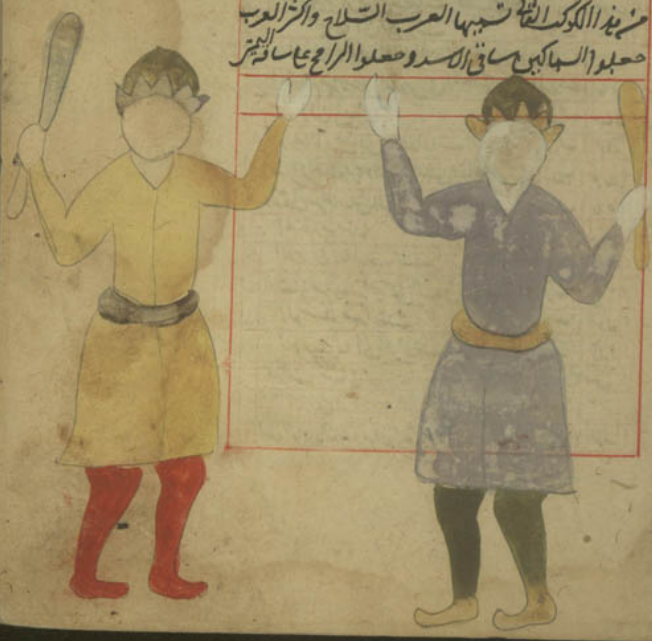 من هذا الكوكب التي تسميها العرب السلاح واكثر العرب
جعلوا السماكين ساقى الاسد وجعلوا الرامح على ساقه اليمنى